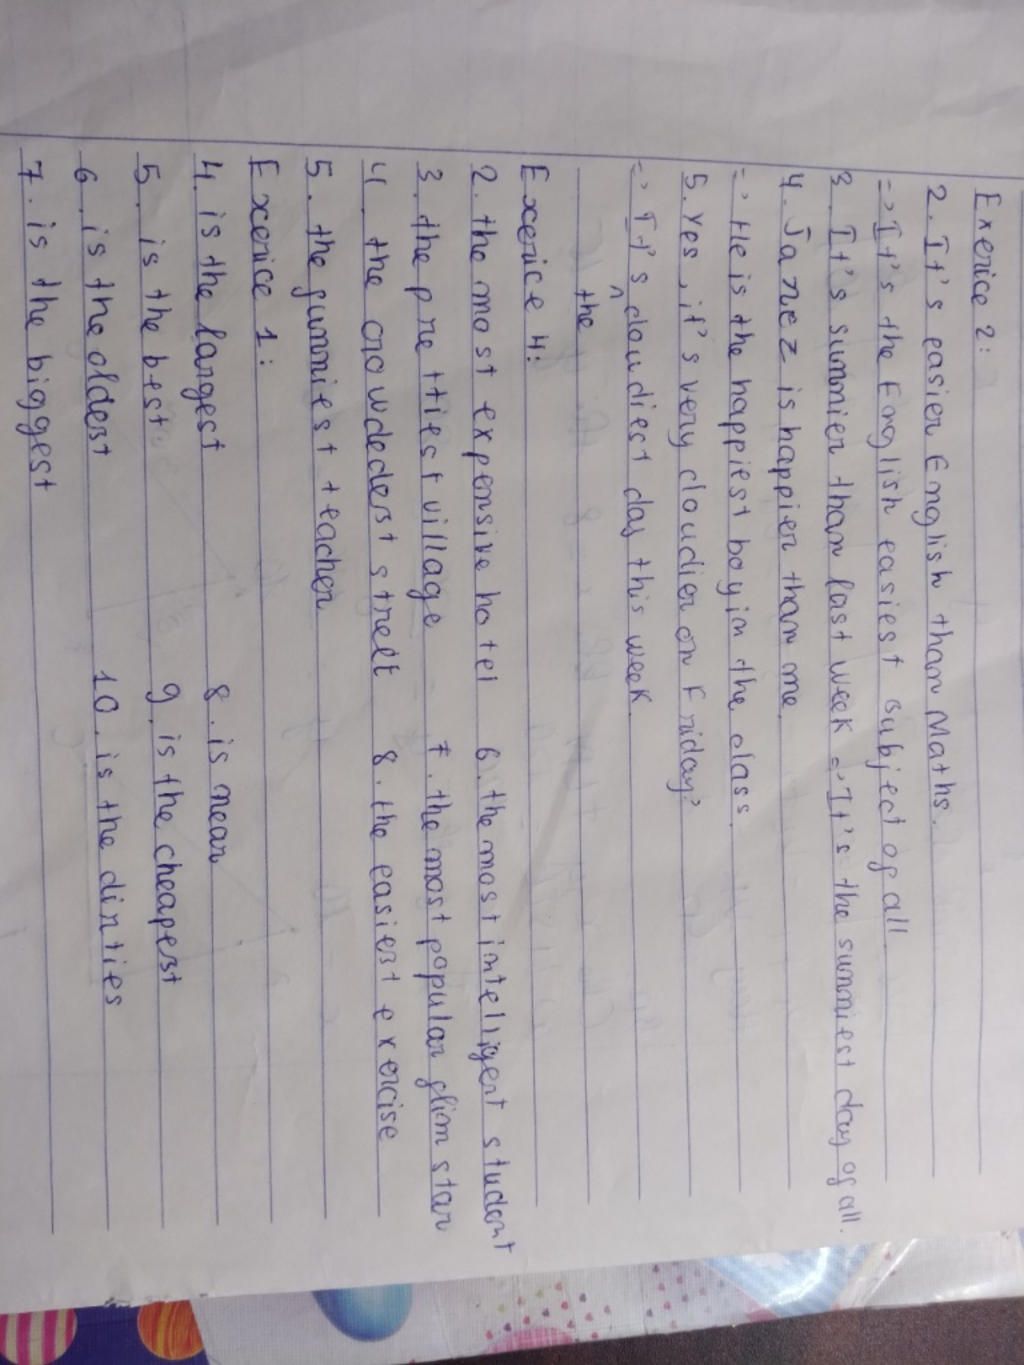 Exerice 2:
2. It's easier English than Maths.
=> It's the English easiest subject of all
3. It's summier than last week => It's the sunniest day of all.
4. Janez is happier than me
=> He is the happiest boy in the class.
5. Yes, it's very cloudier on Friday?
=> It's ^ cloudiest day this week.
the
Exerice 4:
2. the most expensive hotel 6. the most intelligent student
3. the prettiest village 7. the most popular film star
4. the crowdedest street 8. the easiest exercise
5. the funniest teacher
Exerice 1:
4. is the largest 8. is near
5. is the best 9. is the cheapest
6. is the oldest 10. is the dirties
7. is the biggest